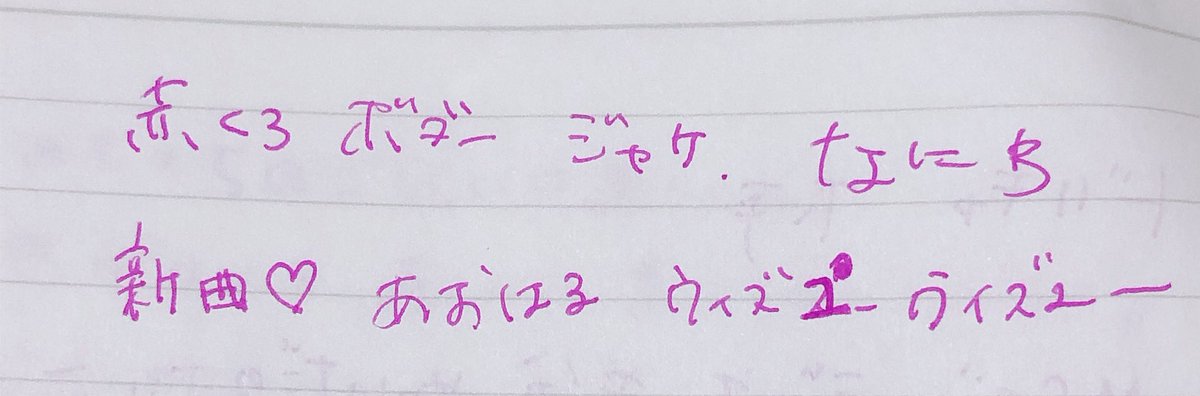 赤くろ ボズー ジャケ. なにち
新曲♡ あおはる ウィズユー ウィズユー